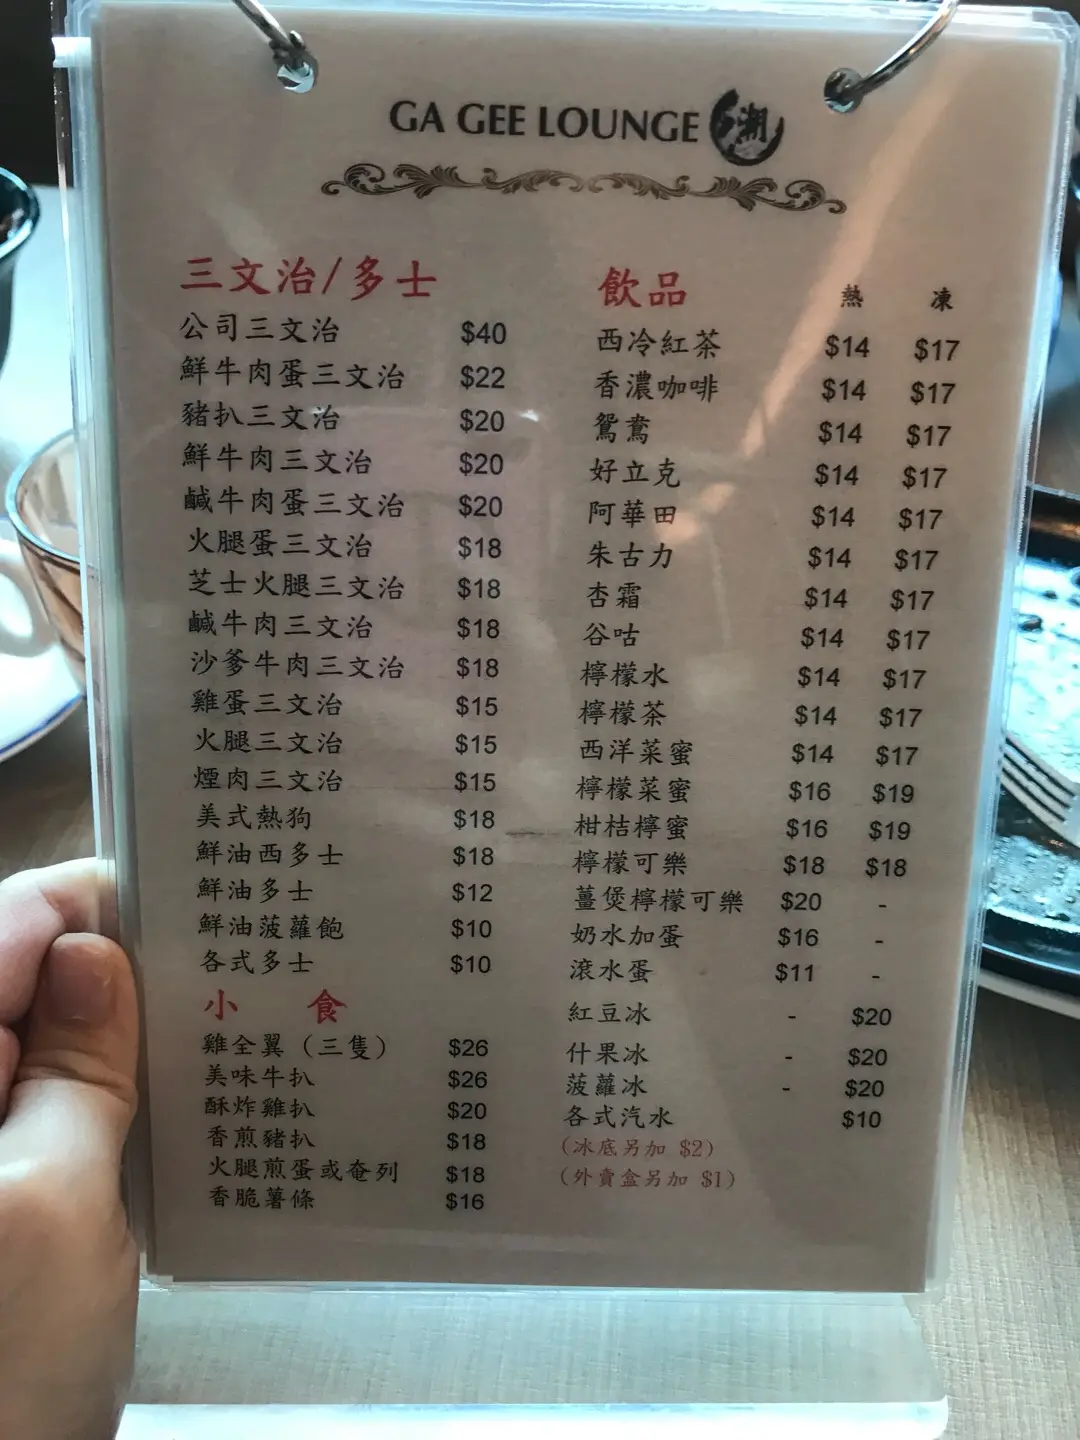 GA GEE LOUNGE 潮
三文治/多士
公司三文治 $40
鮮牛肉蛋三文治 $22
豬扒三文治 $20
鮮牛肉三文治 $20
鹹牛肉蛋三文治 $20
火腿蛋三文治 $18
芝士火腿三文治 $18
鹹牛肉三文治 $18
沙爹牛肉三文治 $18
雞蛋三文治 $15
火腿三文治 $15
煙肉三文治 $15
美式熱狗 $18
鮮油西多士 $18
鮮油多士 $12
鮮油菠蘿飽 $10
各式多士 $10
小 食
雞全翼（三隻） $26
美味牛扒 $26
酥炸雞扒 $20
香煎豬扒 $18
火腿煎蛋或奄列 $18
香脆薯條 $16
飲品 熱 凍
西冷紅茶 $14 $17
香濃咖啡 $14 $17
鴛鴦 $14 $17
好立克 $14 $17
阿華田 $14 $17
朱古力 $14 $17
杏霜 $14 $17
谷咕 $14 $17
檸檬水 $14 $17
檸檬茶 $14 $17
西洋菜蜜 $14 $17
檸檬菜蜜 $16 $19
柑桔檸蜜 $16 $19
檸檬可樂 $18 $18
薑煲檸檬可樂 $20 -
奶水加蛋 $16 -
滾水蛋 $11 -
紅豆冰 - $20
什果冰 - $20
菠蘿冰 - $20
各式汽水 $10
（冰底另加 $2）
（外賣盒另加 $1）